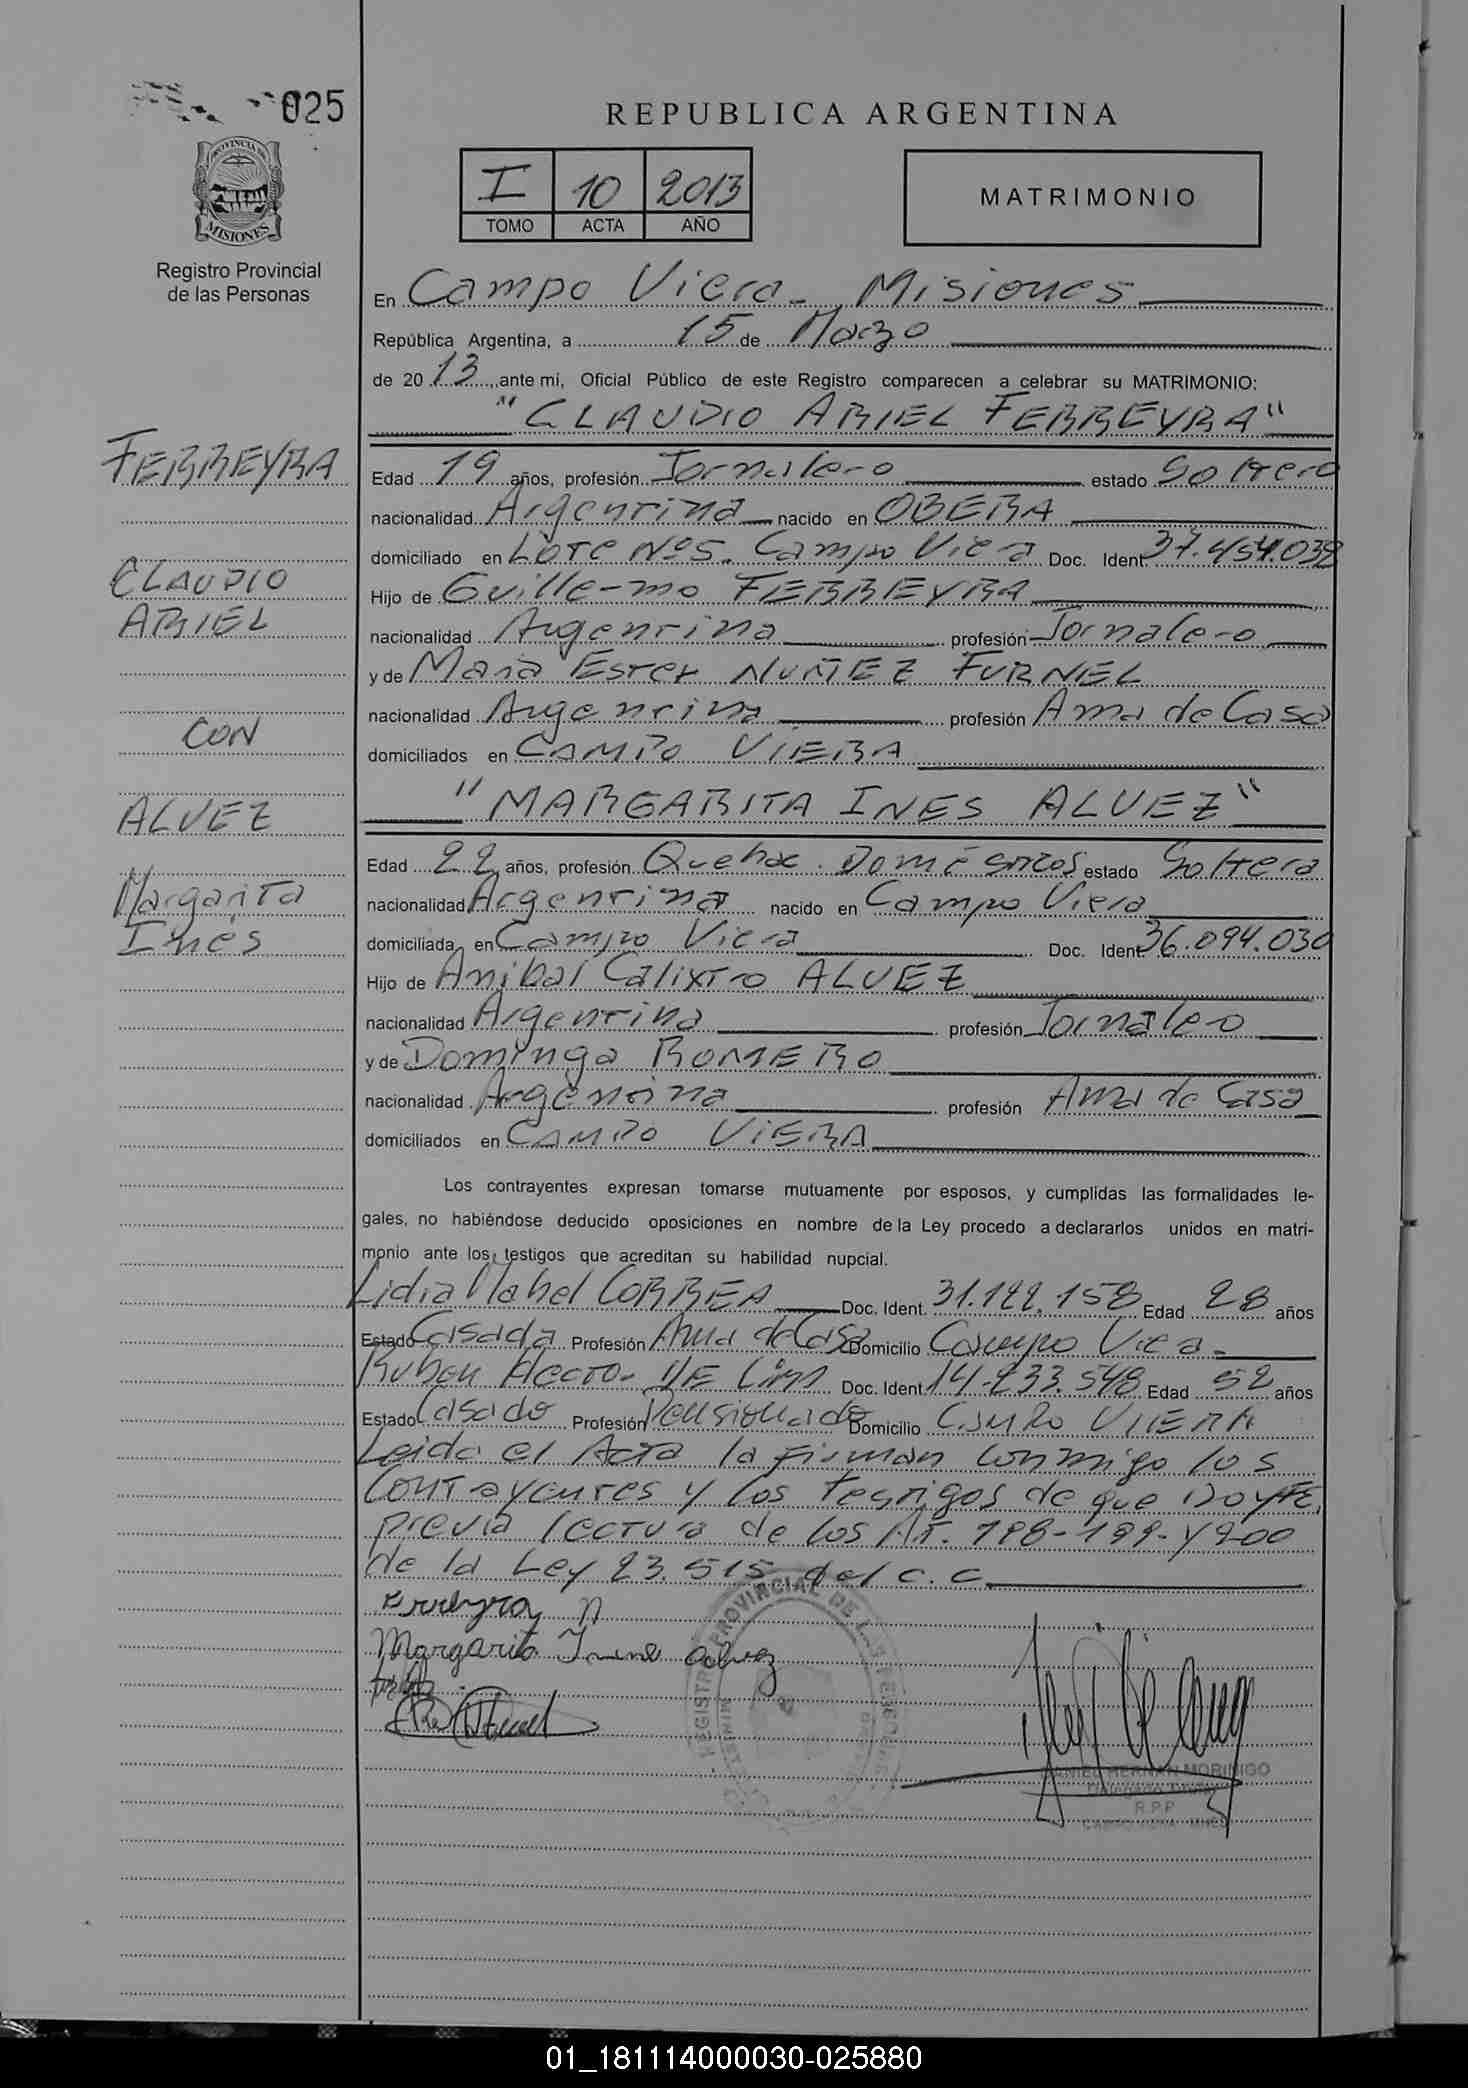 025
PROVINCIA DE
MISIONES
Registro Provincial
de las Personas
REPUBLICA ARGENTINA
I 10 2013
TOMO ACTA AÑO
MATRIMONIO
En Campo Viera - Misiones
República Argentina, a 15 de Marzo
de 20 13 ,ante mí, Oficial Público de este Registro comparecen a celebrar su MATRIMONIO:
"CLAUDIO ARIEL FERREYRA"
FERREYRA
CLAUDIO
ARIEL
CON
ALVEZ
Margarita
Inés
Edad 19 años, profesión Jornalero estado Soltero
nacionalidad Argentina nacido en OBERA
domiciliado en Lote Nº5. Campo Viera Doc. Ident. 37.454.038
Hijo de Guillermo FERREYRA
nacionalidad Argentina profesión Jornalero
y de Maria Ester NUÑEZ FURNEL
nacionalidad Argentina profesión Ama de Casa
domiciliados en CAMPO VIERA
"MARGARITA INES ALVEZ"
Edad 22 años, profesión Quehac. Domésticos estado Soltera
nacionalidad Argentina nacido en Campo Viera
domiciliada en Campo Viera Doc. Ident. 36.094.030
Hijo de Anibal Calixto ALVEZ
nacionalidad Argentina profesión Jornalero
y de Dominga ROMERO
nacionalidad Argentina profesión Ama de Casa
domiciliados en CAMPO VIERA
Los contrayentes expresan tomarse mutuamente por esposos, y cumplidas las formalidades le-
gales, no habiéndose deducido oposiciones en nombre de la Ley procedo a declararlos unidos en matri-
monio ante los testigos que acreditan su habilidad nupcial.
Lidia Mabel CORREA Doc. Ident. 31.122.158 Edad 28 años
Estado Casada Profesión Ama de Casa Domicilio Campo Viera -
Ruben Hector DE LIMA Doc. Ident. 14.233.548 Edad 52 años
Estado Casado Profesión Pensionado Domicilio CAMPO VIERA
Leida el Acta la Firman conmigo los
Contrayentes y los testigos de que DOY FE,
previa lectura de los Art. 198-199- y 200
de la Ley 23.515 del C.C
Ferreyra A
Margarita Ines alvez
REGISTRO PROVINCIAL DE LAS PERSONAS
DANIEL HERNAN MORINIGO
Delegado
R.P.P.
01_181114000030-025880